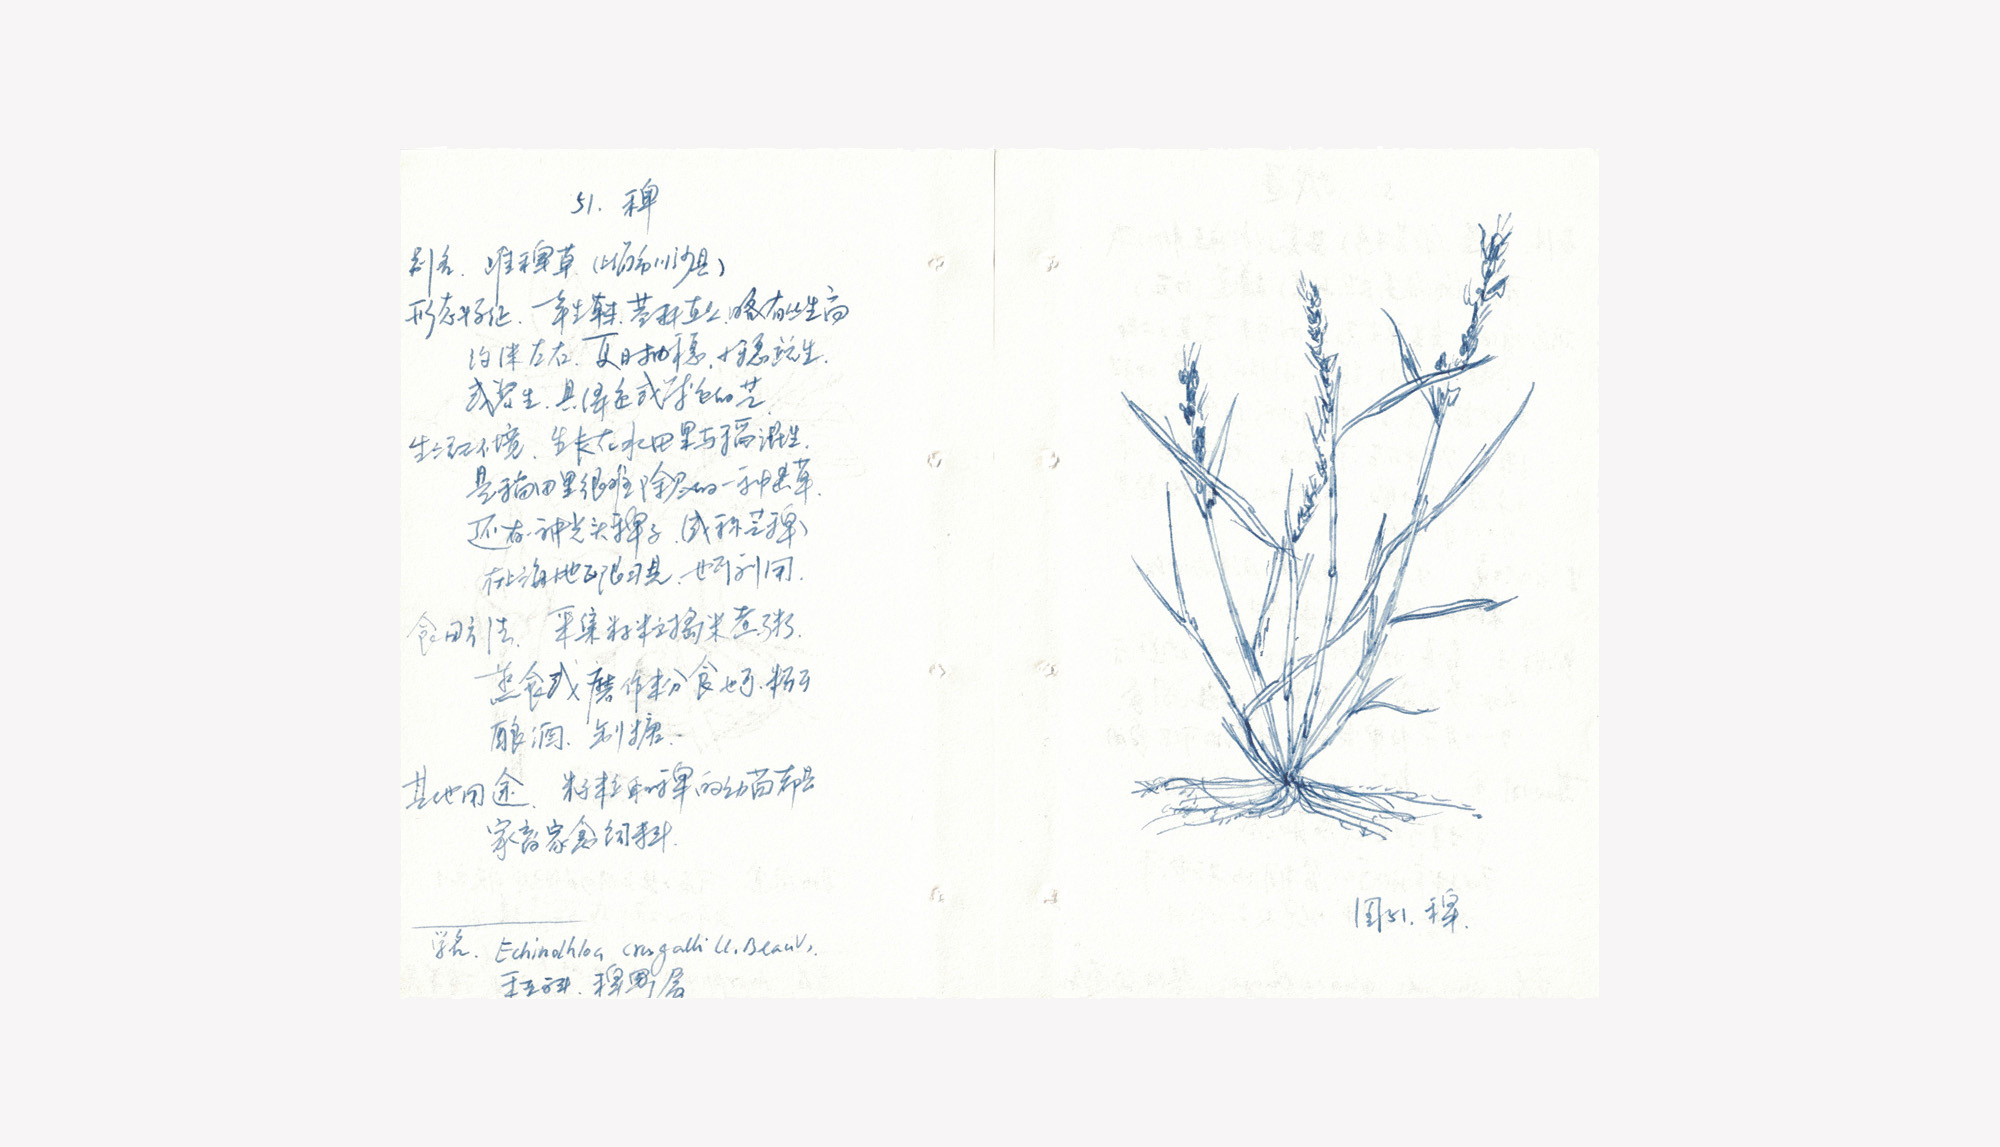 51. 稗
别名. 稗草 (川沙县)
形态特征. 一年生草本. 茎秆直立. 略有丛生高
约1米左右. 夏日抽穗. 小穗
或 生. 具绿色或 色的芒.
生活环境. 生长在水田里与稻混生.
是稻田里很难除尽的一种杂草.
还有一种光头稗子 (或称芒稗)
在上海地区很习见. 也可利用.
食用方法. 采集籽粒捣米煮粥.
蒸食或磨作粉食也可. 粉可
酿酒. 制糖.
其他用途. 籽粒和稗的幼苗都是
家畜家禽饲料.
学名. Echinochloa crusgalli (L. Beauv.
禾本科. 稗属
图51. 稗.